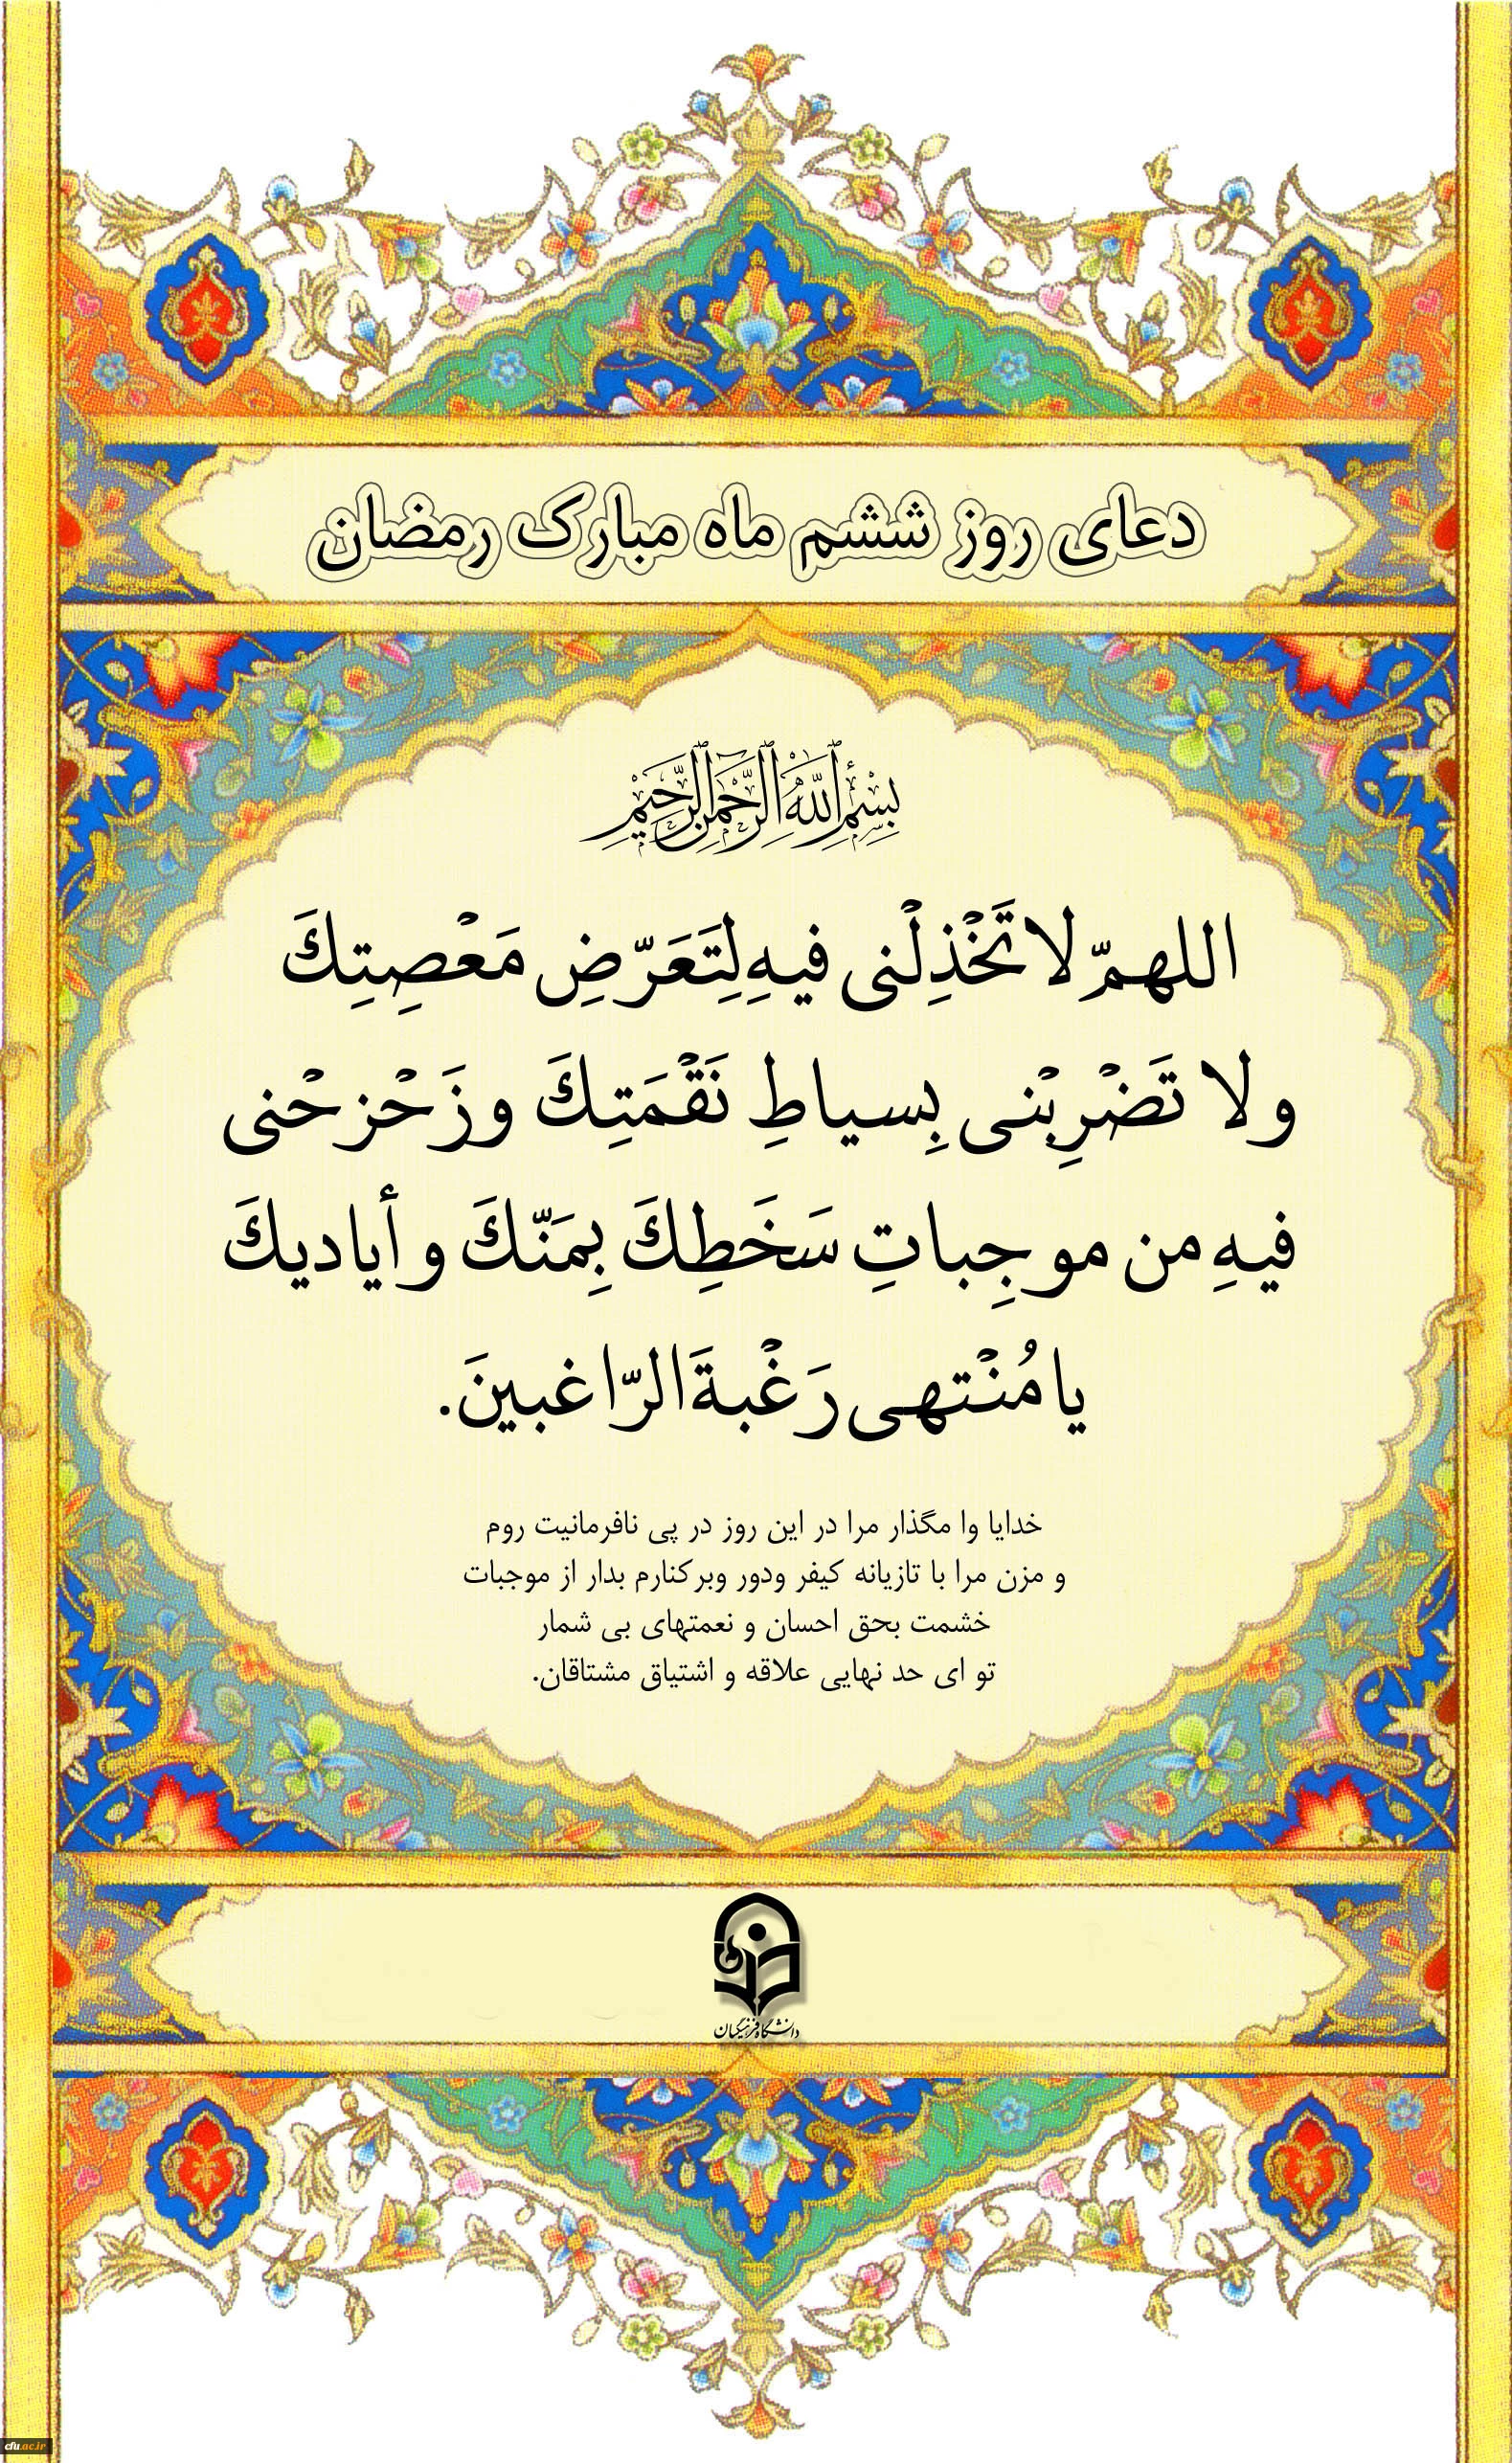 دعای روز ششم ماه مبارک رمضان
بِسْمِ اللَّهِ الرَّحْمَنِ الرَّحِيمِ
اللهمّ لا تَخْذِلْنی فیهِ لِتَعَرّضِ مَعْصِیَتِكَ
ولا تَضْرِبْنی بِسیاطِ نَقْمَتِكَ وزَحْزحْنی
فیهِ من موجِباتِ سَخَطِكَ بِمَنّكَ وأیادیكَ
یا مُنْتهی رَغْبةَ الرّاغبینَ.
خدایا وا مگذار مرا در این روز در پی نافرمانیت روم
و مزن مرا با تازیانه کیفر ودور وبرکنارم بدار از موجبات
خشمت بحق احسان و نعمتهای بی شمار
تو ای حد نهایی علاقه و اشتیاق مشتاقان.
دانشگاه فرهنگیان
cfu.ac.ir